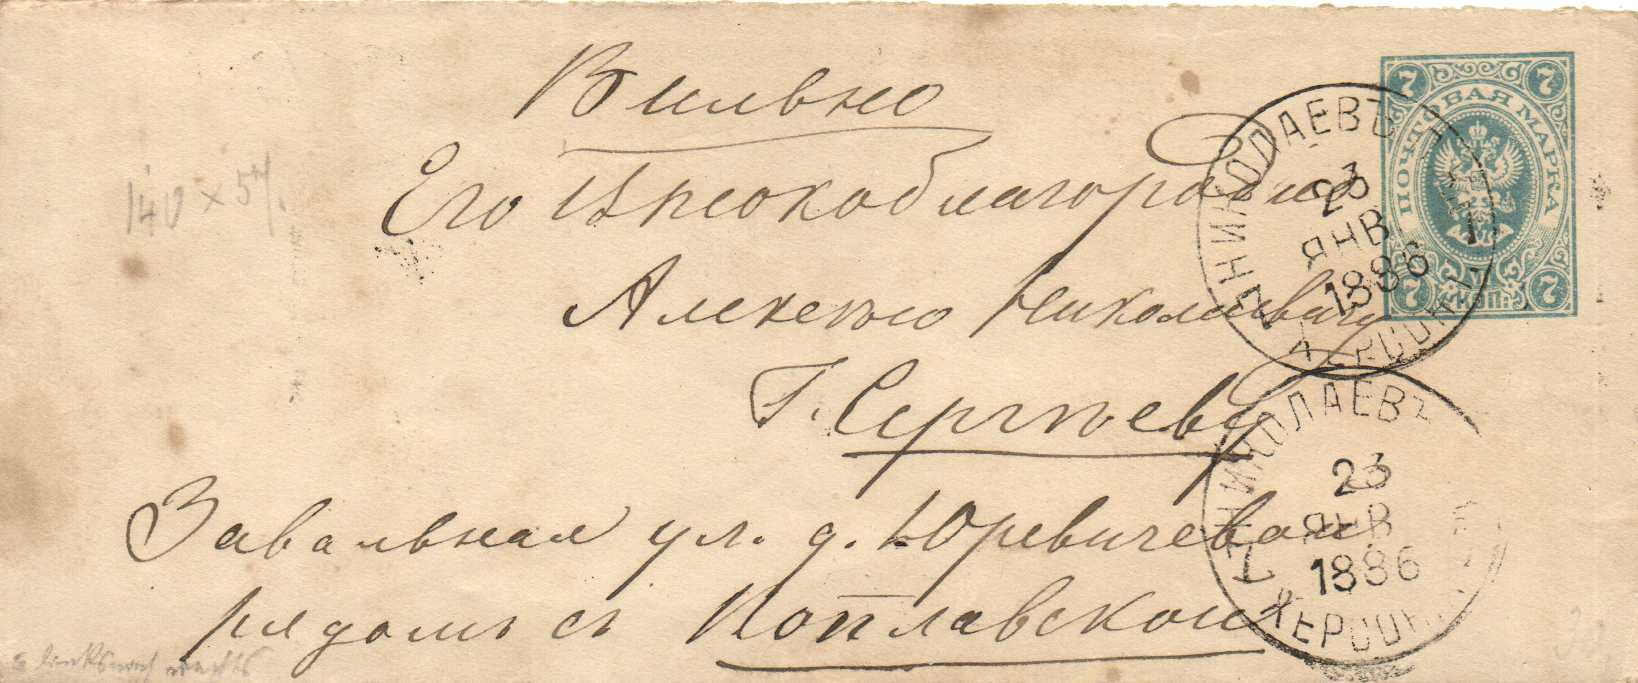 Вильно
Его Высокоблагородию
Алексѣю Николаевичу
Г. Сергѣеву
Завальная ул. д. Юревичевой
рядомъ съ Поплавской
140 x 54.
7 7
ПОЧТОВАЯ МАРКА
7 КОП. 7
НИКОЛАЕВЪ
23
ЯНВ
1886
ХЕРСОН
НИКОЛАЕВЪ
23
ЯНВ
1886
ХЕРСОН